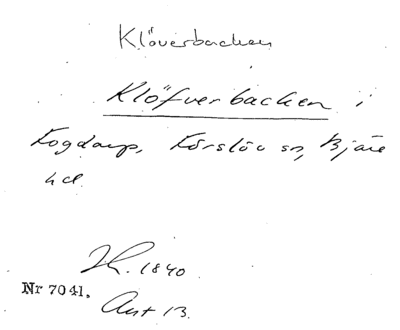 Klöverbacken
Klöfverbacken i
Fogdarp, Förslöv sn, Bjäre
hd.
1840.
Nr 7041.
Aut 13.